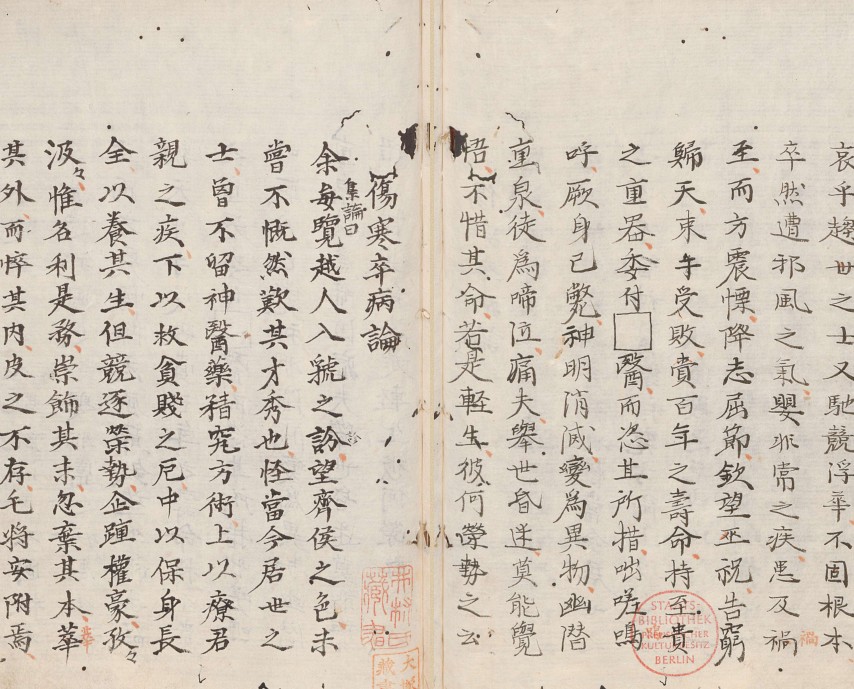 哀乎趨世之士又馳競浮華不固根本
卒然遭邪風之氣嬰非常之疾患及禍
禍
至而方震慄降志屈節欽望巫祝告窮
歸天束手受敗貴百年之壽命持至貴
之重器委付醫而恣其所措咄嗟嗚
呼厥身已斃神明消滅變為異物幽潛
重泉徒為啼泣痛夫舉世昏迷莫能覺
悟不惜其命若是輕生彼何榮勢之云
STAATS-
BIBLIOTHEK
KULTURBESITZ
BERLIN
傷寒卒病論
集論曰
余每覽越人入虢之訜望齊侯之色未
診
嘗不慨然歎其才秀也怪當今居世之
士曾不留神醫藥精究方術上以療君
親之疾下以救貧賤之厄中以保身長
全以養其生但競逐榮勢企踵權豪孜々
汲々惟名利是務崇飾其末忽棄其本華
華
其外而悴其內皮之不存毛將安附焉
藏書